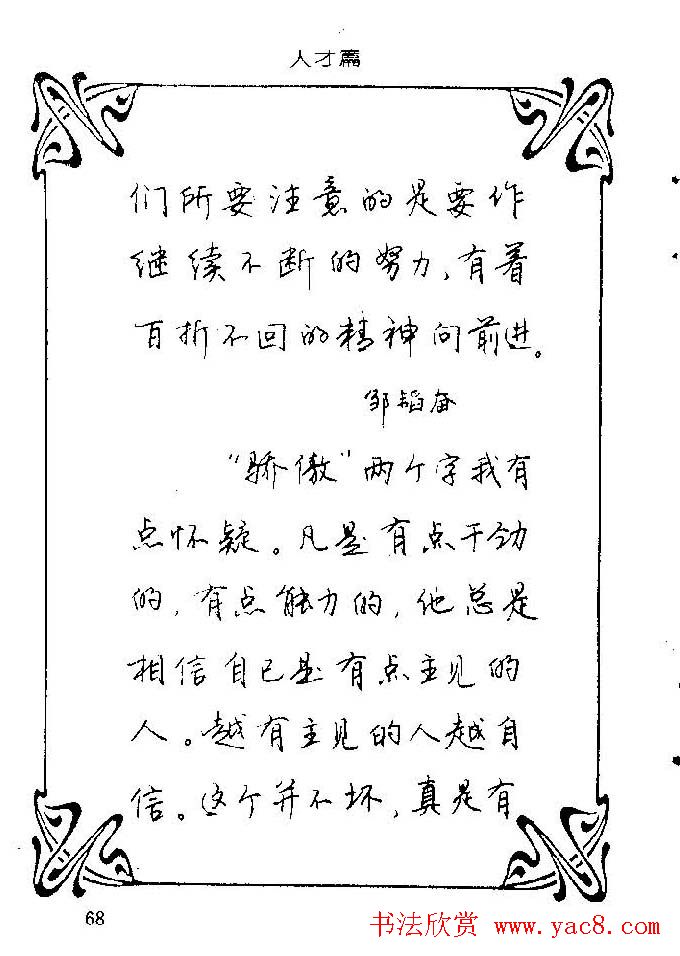 人才篇
们所要注意的是要作
继续不断的努力,有着
百折不回的精神向前进。
邹韬奋
“骄傲”两个字我有
点怀疑。凡是有点干劲
的,有点能力的,他总是
相信自己是有点主见的
人。越有主见的人越自
信。这个并不坏,真是有
68
书法欣赏 www.yac8.com